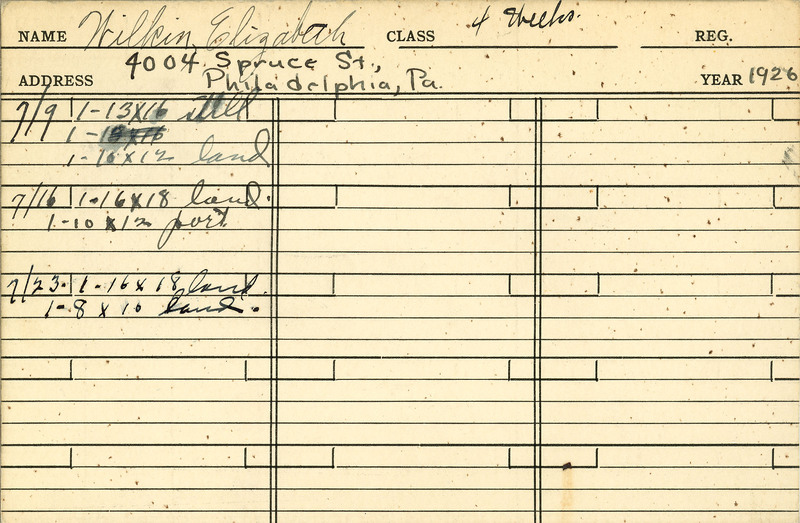 NAME Wilkin, Elizabeth CLASS 4 Weeks. REG.
ADDRESS 4004 Spruce St.,
Philadelphia, Pa. YEAR 1926
7/9 1-13x16 still
1-16x12 land
7/16 1-16x18 land.
1-10x12 port
7/23. 1-16x18 land.
1-8x10 land.